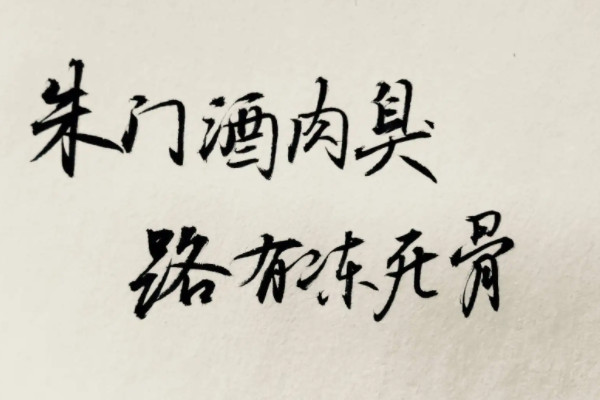 朱门酒肉臭
路有冻死骨